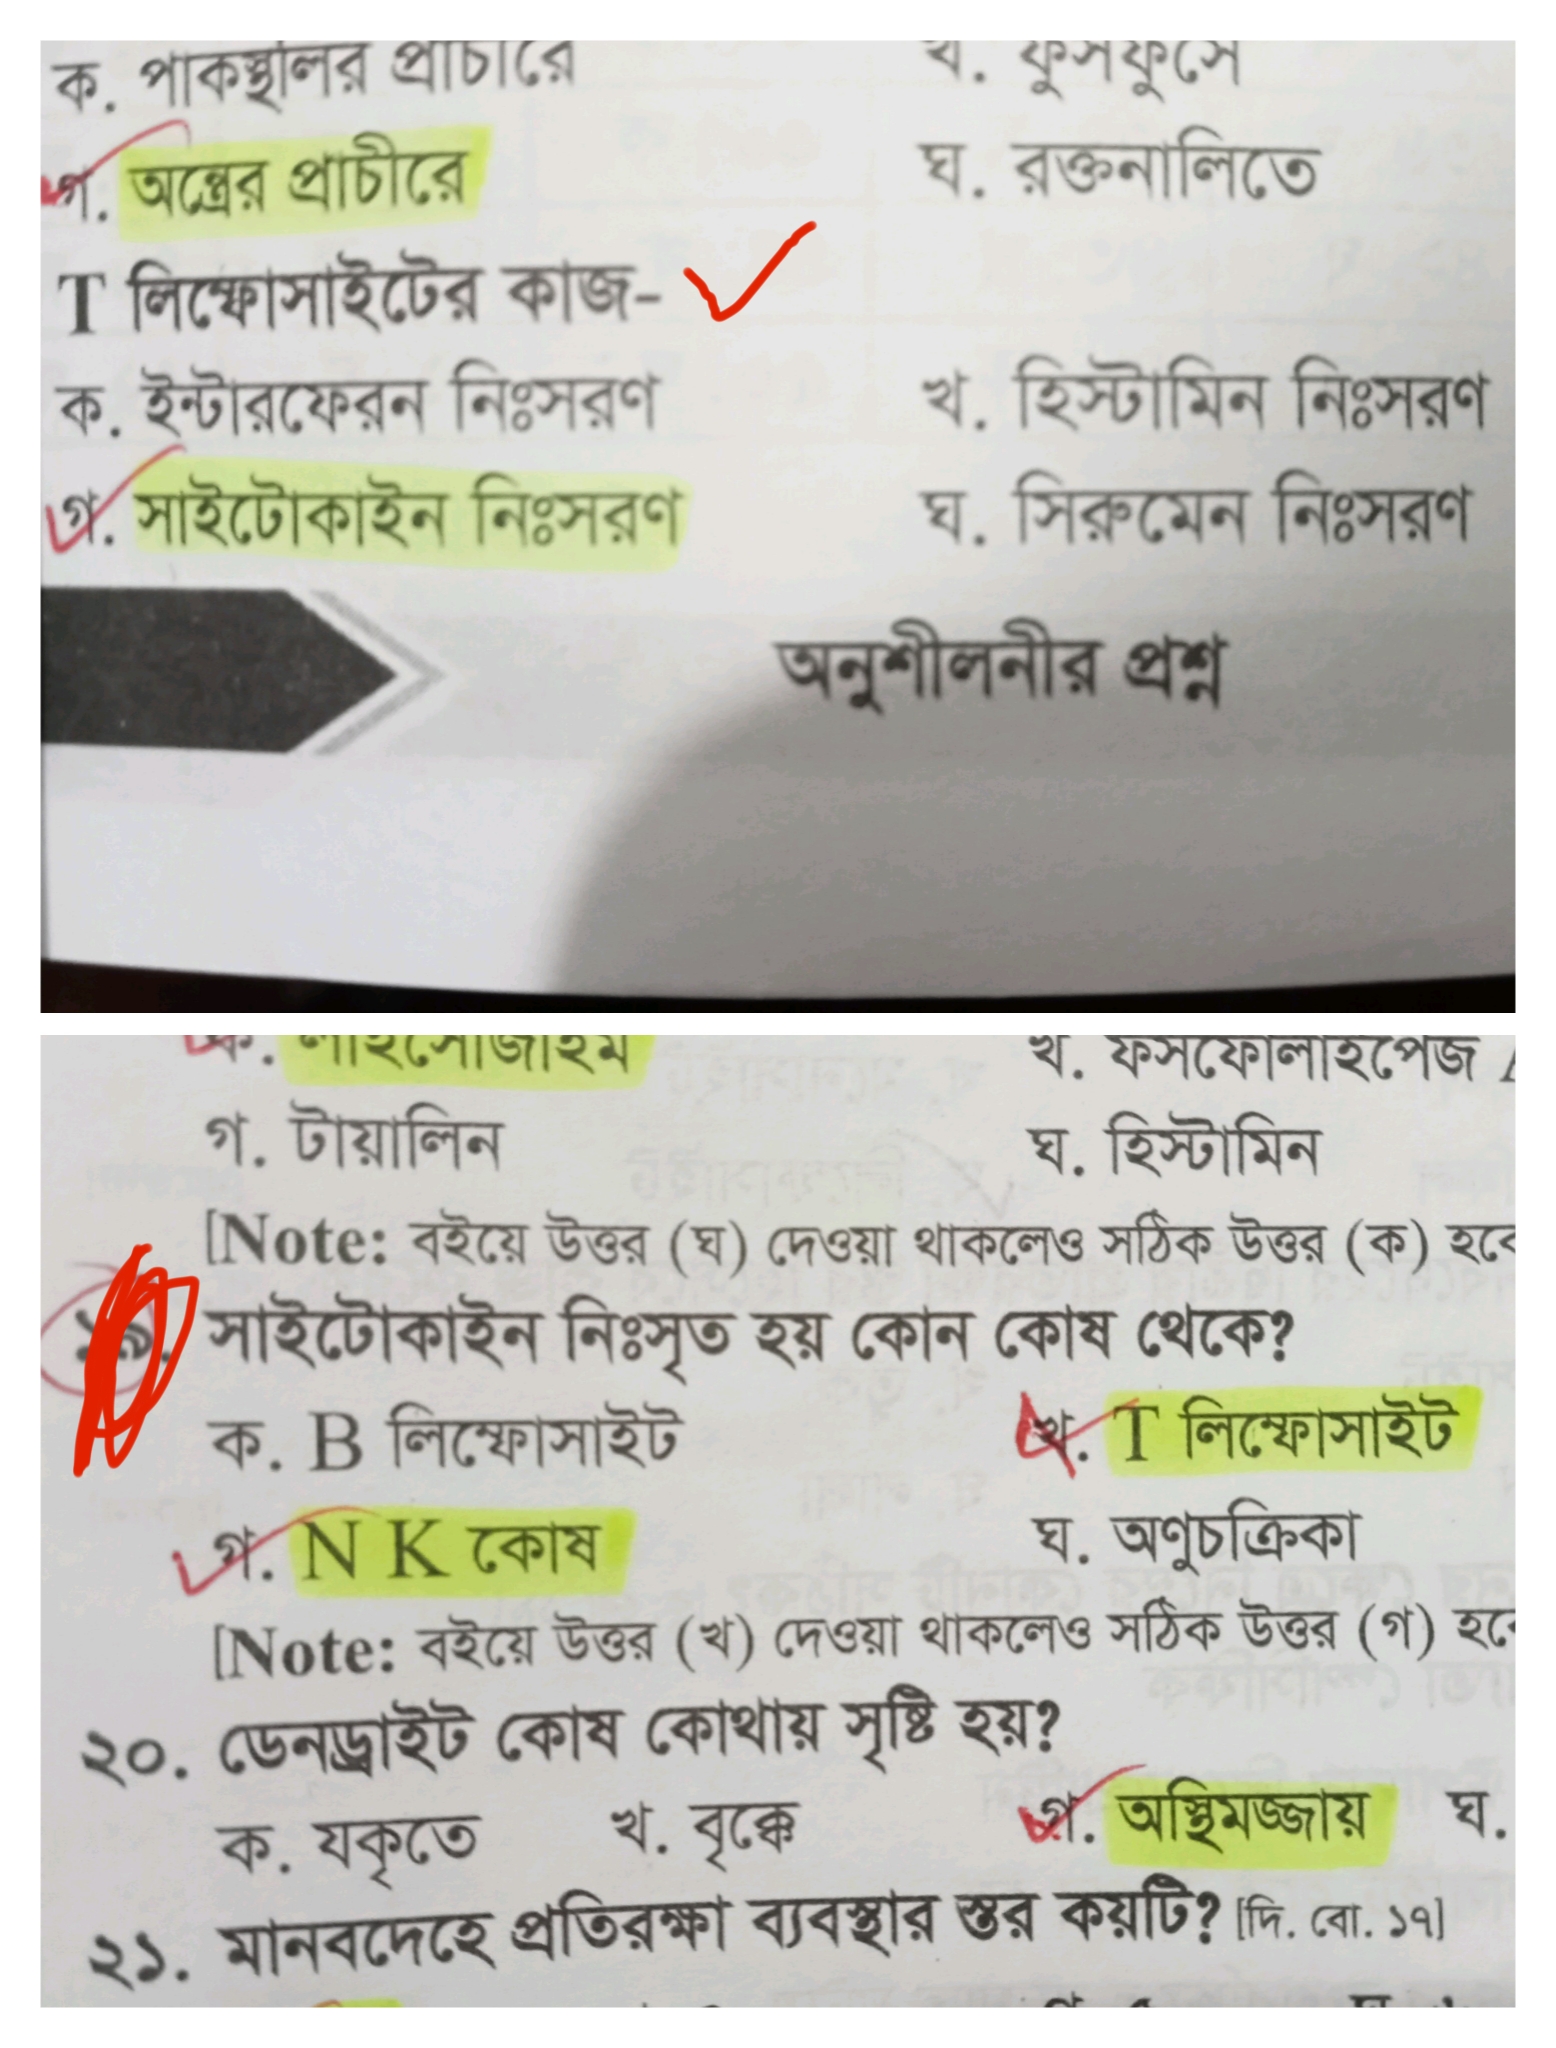 ক. পাকস্থলির প্রাচীরে খ. ফুসফুসে
গ. অন্ত্রের প্রাচীরে ঘ. রক্তনালিতে
T লিম্ফোসাইটের কাজ-
ক. ইন্টারফেরন নিঃসরণ খ. হিস্টামিন নিঃসরণ
গ. সাইটোকাইন নিঃসরণ ঘ. সিরুমেন নিঃসরণ
অনুশীলনীর প্রশ্ন
ক. লাইসোজাইম খ. ফসফোলাইপেজ
গ. টায়ালিন ঘ. হিস্টামিন
[Note: বইয়ে উত্তর (ঘ) দেওয়া থাকলেও সঠিক উত্তর (ক) হবে
১৯. সাইটোকাইন নিঃসৃত হয় কোন কোষ থেকে?
ক. B লিম্ফোসাইট খ. T লিম্ফোসাইট
গ. N K কোষ ঘ. অণুচক্রিকা
[Note: বইয়ে উত্তর (খ) দেওয়া থাকলেও সঠিক উত্তর (গ) হবে
২০. ডেনড্রাইট কোষ কোথায় সৃষ্টি হয়?
ক. যকৃতে খ. বৃক্কে গ. অস্থিমজ্জায় ঘ.
২১. মানবদেহে প্রতিরক্ষা ব্যবস্থার স্তর কয়টি? [দি. বো. ১৭]